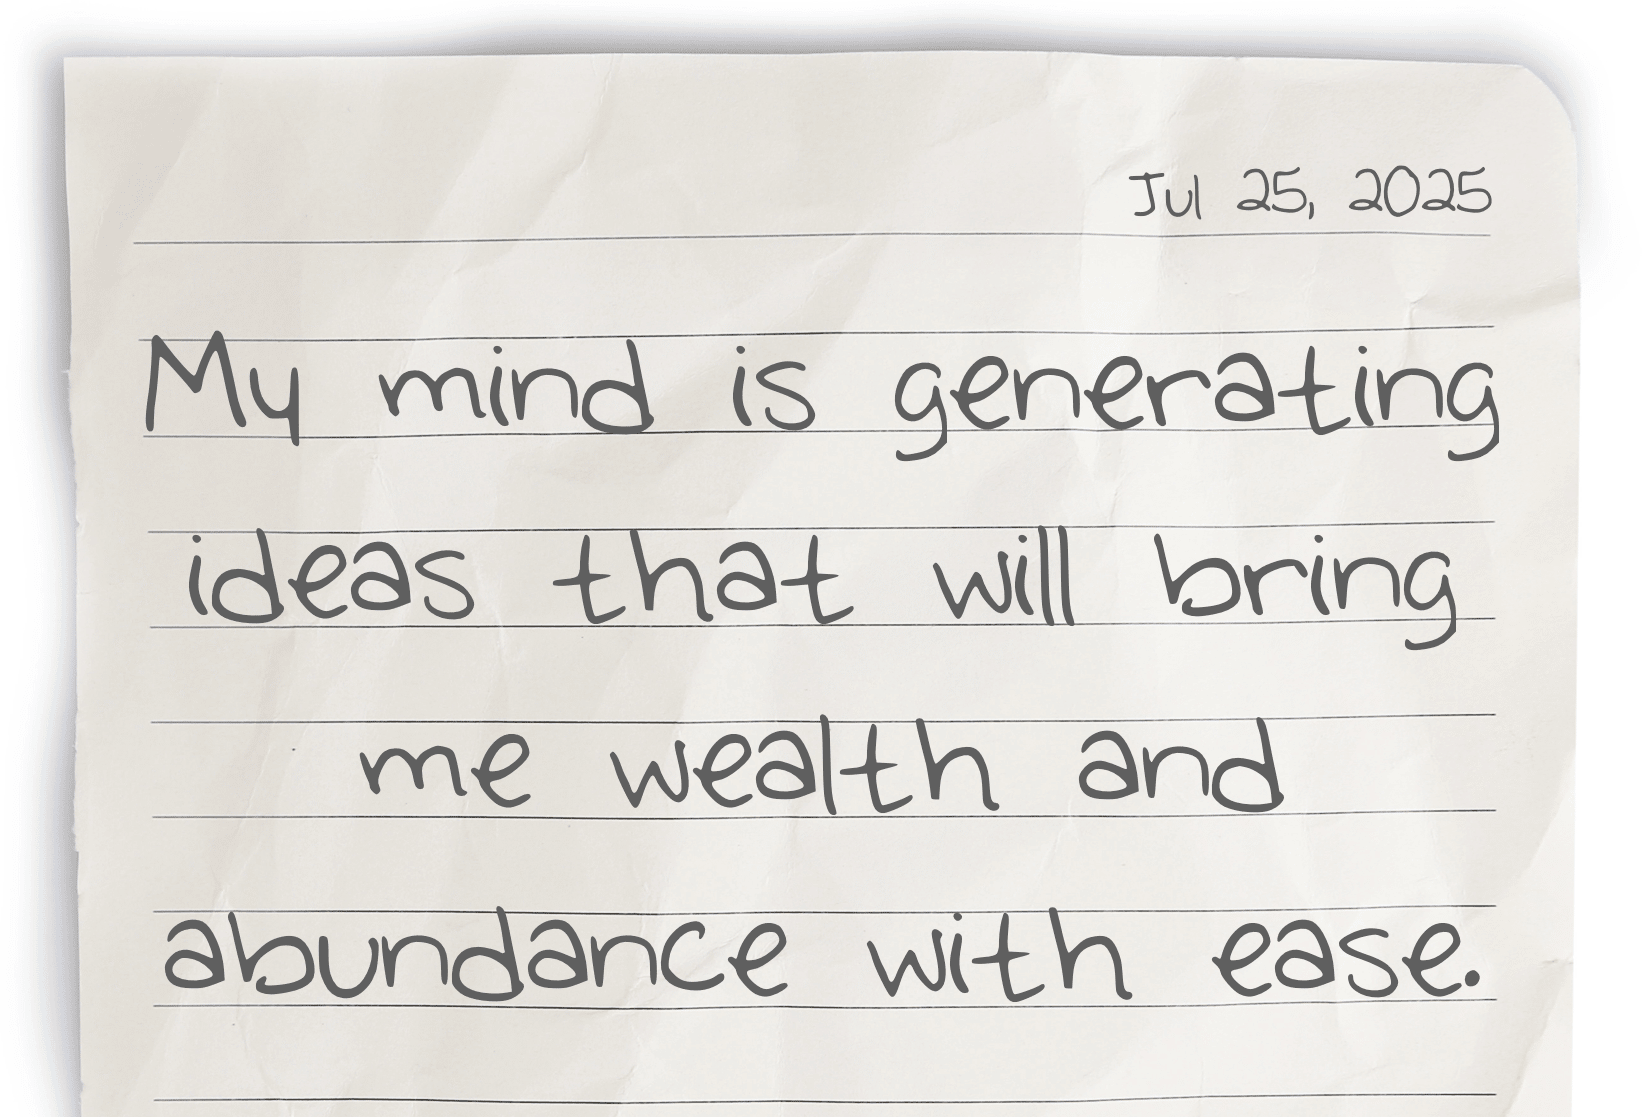 Jul 25, 2025
My mind is generating
ideas that will bring
me wealth and
abundance with ease.